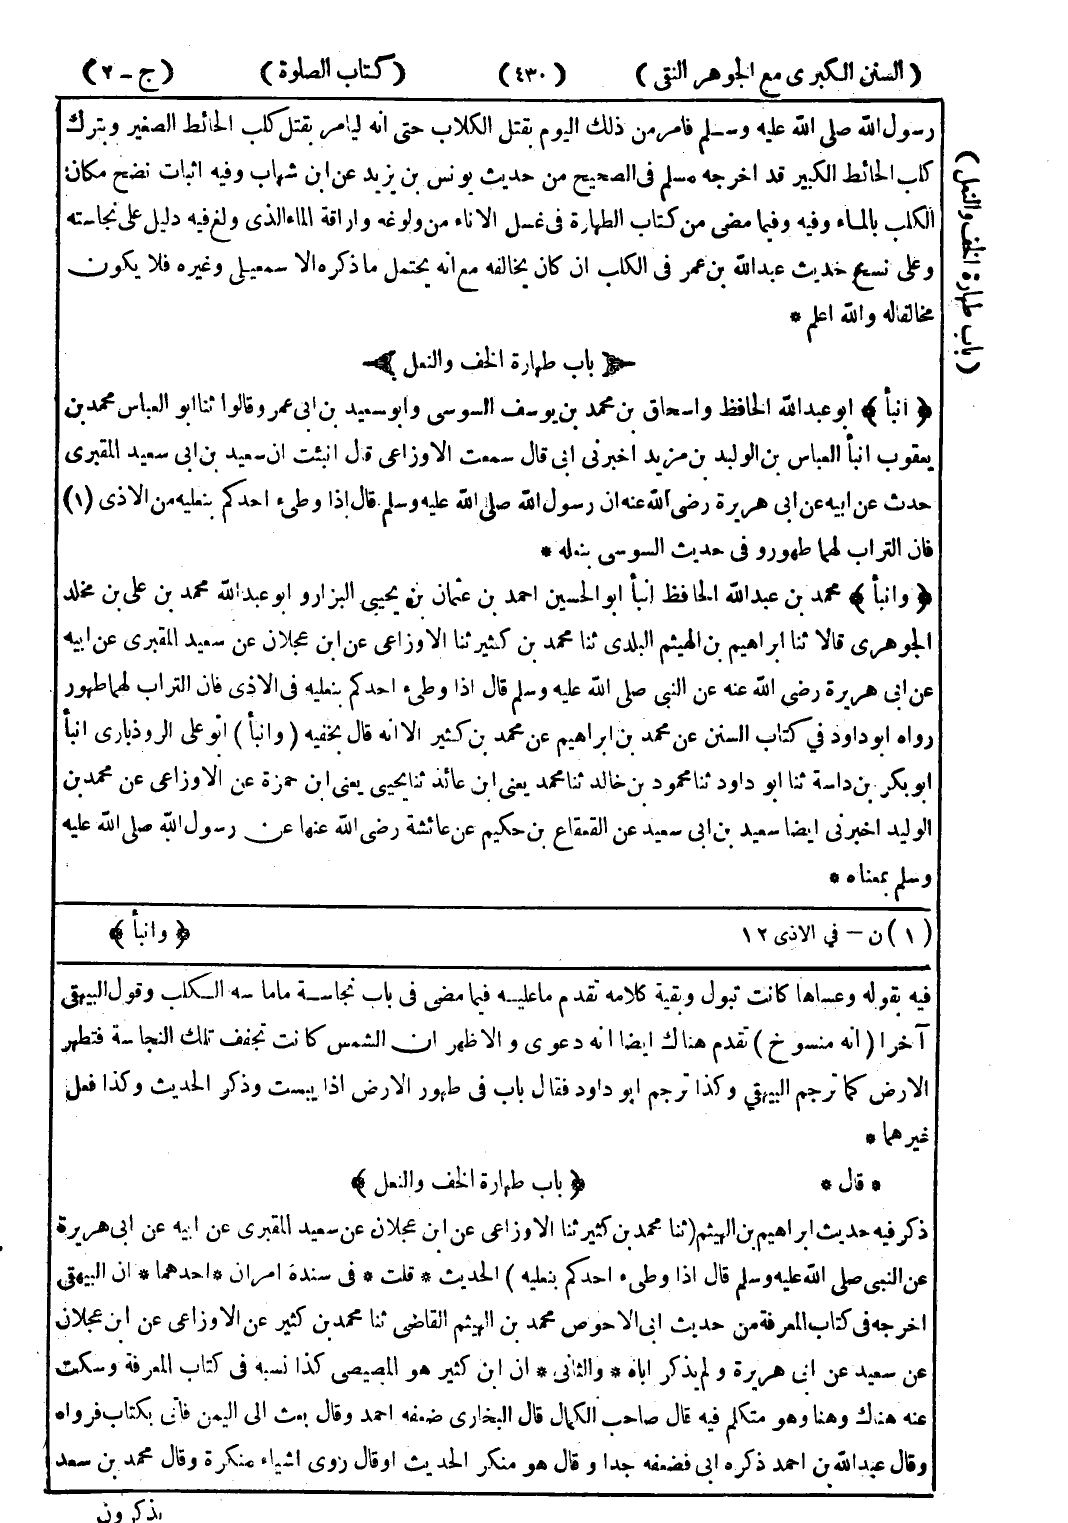 (السنن الكبرى مع الجوهر النقى) (٤٣٠) (كتاب الصلوة) (ج-٢)
رسول الله صلى الله عليه وسلم فامر من ذلك اليوم بقتل الكلاب حتى انه ليامر بقتل كلب الحائط الصغير ويترك
كلب الحائط الكبير قد اخرجه مسلم فى الصحيح من حديث يونس بن يزيد عن ابن شهاب وفيه اثبات نضح مكان
الكلب بالماء وفيه وفيما مضى من كتاب الطهارة فى غسل الاناء من ولوغه واراقة الماء الذى ولغ فيه دليل على نجاسته
وعلى نسخ حديث عبدالله بن عمر فى الكلب ان كان يخالفه مع انه يحتمل ما ذكره الاسمعيلى وغيره فلا يكون
مخالفا له والله اعلم *
(باب طهارة الخف والنعل)
﴿باب طهارة الخف والنعل﴾
﴿انبأ﴾ ابو عبدالله الحافظ واسحاق بن محمد بن يوسف السوسى وابو سعيد بن ابى عمر وقالوا ثنا ابو العباس محمد بن
يعقوب انبأ العباس بن الوليد بن مزيد اخبرنى ابى قال سمعت الاوزاعى قال انبئت ان سعيد بن ابى سعيد المقبرى
حدث عن ابيه عن ابى هريرة رضى الله عنه ان رسول الله صلى الله عليه وسلم قال اذا وطىء احدكم بنعليه من الاذى (١)
فان التراب لهما طهور و فى حديث السوسى بنعله *
﴿وانبأ﴾ محمد بن عبدالله الحافظ انبأ ابو الحسين احمد بن عثمان بن يحيى البزار و ابو عبدالله محمد بن على بن مخلد
الجوهرى قالا ثنا ابراهيم بن الهيثم البلدى ثنا محمد بن كثير ثنا الاوزاعى عن ابن عجلان عن سعيد المقبرى عن ابيه
عن ابى هريرة رضى الله عنه عن النبى صلى الله عليه وسلم قال اذا وطىء احدكم بنعليه فى الاذى فان التراب لهما طهور
رواه ابو داود في كتاب السنن عن محمد بن ابراهيم عن محمد بن كثير الا انه قال بخفيه (وانبأ) ابو على الروذبارى انبأ
ابو بكر بن داسة ثنا ابو داود ثنا محمود بن خالد ثنا محمد يعنى ابن عائذ ثنا يحيى يعنى ابن حمزة عن الاوزاعى عن محمد بن
الوليد اخبرنى ايضا سعيد بن ابى سعيد عن القعقاع بن حكيم عن عائشة رضى الله عنها عن رسول الله صلى الله عليه
وسلم بمعناه *
(١) ن - في الاذى ١٢ ﴿وانبأ﴾
فيه بقوله وعساها كانت تبول وبقية كلامه تقدم ما عليه فيما مضى فى باب نجاسة ماماسه الكلب وقول البيهقى
آخرا (انه منسوخ) تقدم هناك ايضا انه دعوى والاظهر ان الشمس كانت تجفف تلك النجاسة فتطهر
الارض كما ترجم البيهقي وكذا ترجم ابو داود فقال باب فى طهور الارض اذا يبست وذكر الحديث وكذا فعل
غيرهما *
* قال * ﴿باب طهارة الخف والنعل﴾
ذكر فيه حديث ابراهيم بن الهيثم (ثنا محمد بن كثير ثنا الاوزاعى عن ابن عجلان عن سعيد المقبرى عن ابيه عن ابى هريرة
عن النبى صلى الله عليه وسلم قال اذا وطىء احدكم بنعليه) الحديث * قلت * فى سنده امران * احدهما * ان البيهقى
اخرجه فى كتاب المعرفة من حديث ابى الاحوص محمد بن الهيثم القاضى ثنا محمد بن كثير عن الاوزاعى عن ابن عجلان
عن سعيد عن ابى هريرة ولم يذكر اباه * والثانى * ان ابن كثير هو المصيصى كذا نسبه فى كتاب المعرفة وسكت
عنه هناك وهنا وهو متكلم فيه قال صاحب الكمال قال البخارى ضعفه احمد وقال بعث الى اليمن فأتى بكتاب فرواه
وقال عبدالله بن احمد ذكره ابى فضعفه جدا وقال هو منكر الحديث او قال روى اشياء منكرة وقال محمد بن سعد
يذكرون